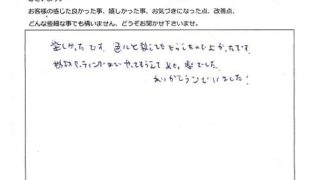 お客様の感じた良かった事、嬉しかった事、お気づきになった点、改善点、
どんな些細な事でも構いません、どうぞお聞かせ下さいませ。
楽しかったです。色々と教えてもらえてよかったです。
セッティングまでやってもらえて 楽でした。
ありがとうございました!